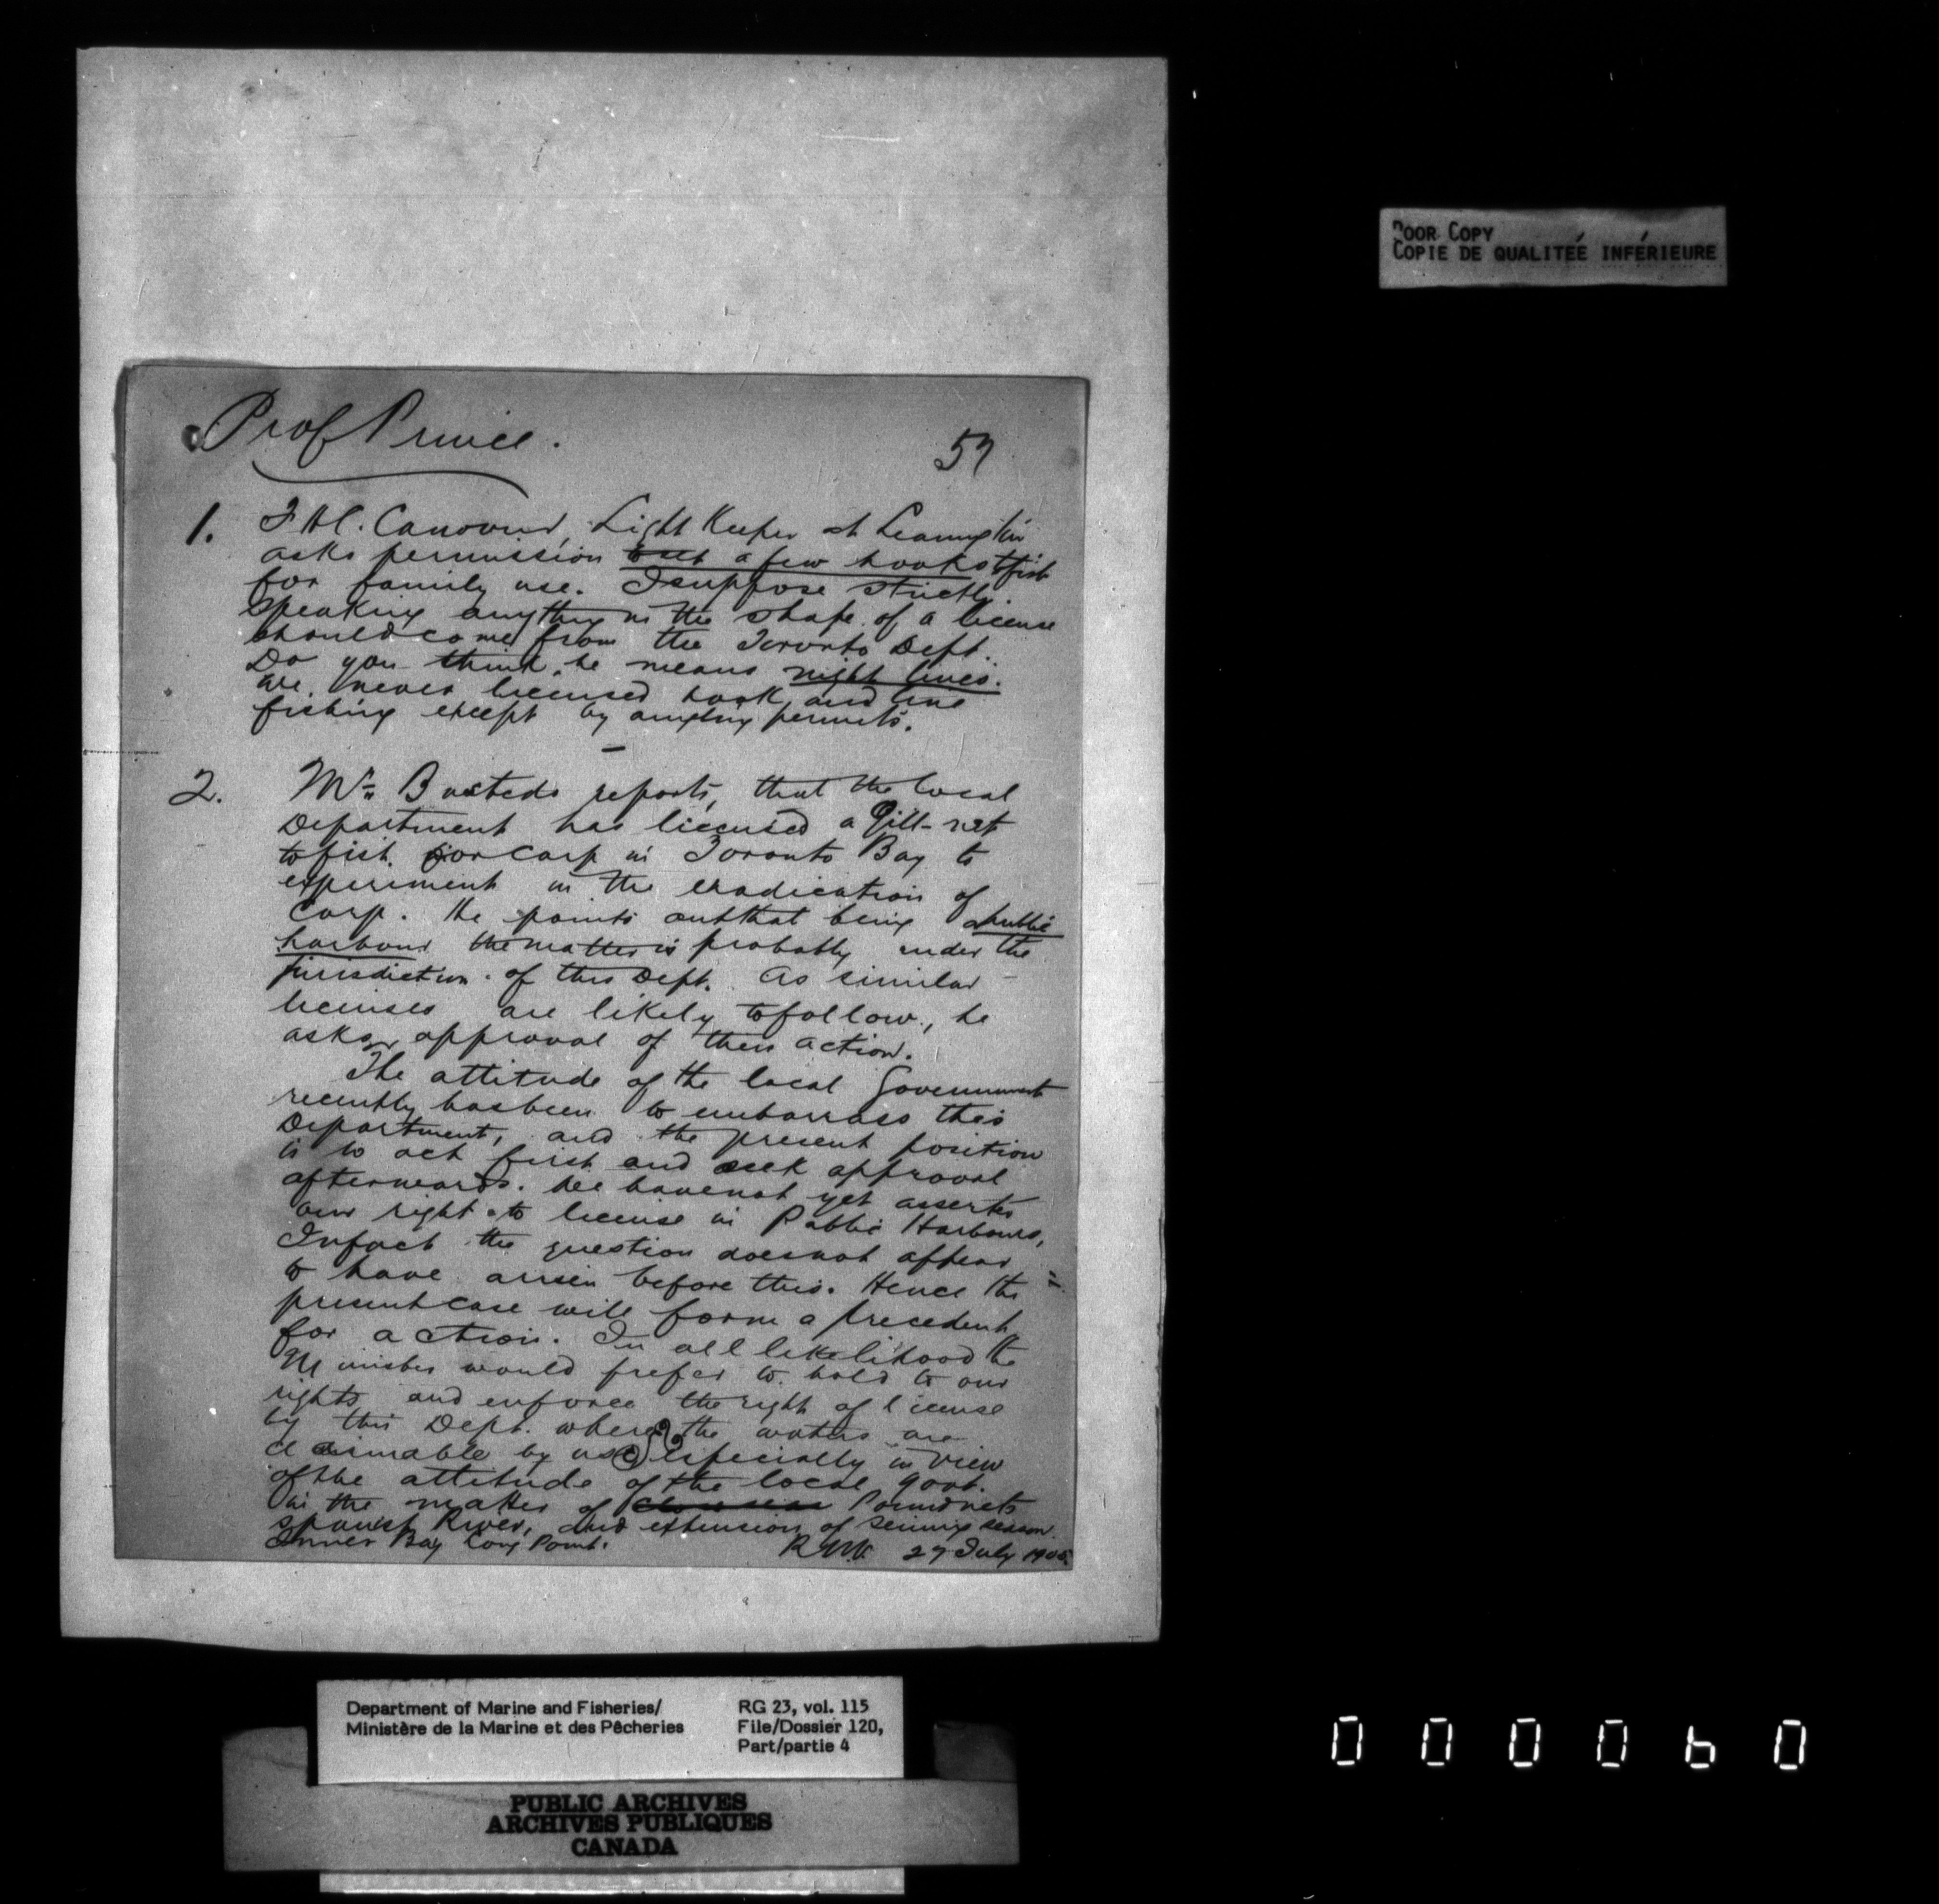 Prof Prince.
57
1. Light Keeper at Leamington
asks permission to set a few hooks to fish
for family use. I suppose strictly
speaking anything in the shape of a license
should come from the Toronto Dept.
Do you think he means night lines.
We never licensed hook and line
fishing except by angling permits.
2. Mr. Busteds reports, that the local
Department has licensed a Gill-net
to fish for carp in Toronto Bay to
experiment in the eradication of
carp. He points out that being a public
harbour the matter is probably under the
jurisdiction of this Dept. As similar
licenses are likely to follow, he
asks approval of their action.
The attitude of the local Government
recently has been to embarrass this
Department, and the present position
is to act first and seek approval
afterwards. We have not yet asserted
our right to license in Public Harbours,
In fact the question does not appear
to have arisen before this. Hence the
present case will form a precedent
for action. In all likelihood the
Minister would prefer to hold to our
rights and enforce the right of license
by this Dept. where the waters are
claimable by us especially in view
of the attitude of the local govt.
in the matter of Poundnets
Spanish River, and extension of seining season
Inner Bay Long Point.
27 July 190
POOR COPY
COPIE DE QUALITÉE INFÉRIEURE
Department of Marine and Fisheries/
Ministère de la Marine et des Pêcheries
RG 23, vol. 115
File/Dossier 120,
Part/partie 4
PUBLIC ARCHIVES
ARCHIVES PUBLIQUES
CANADA
000060